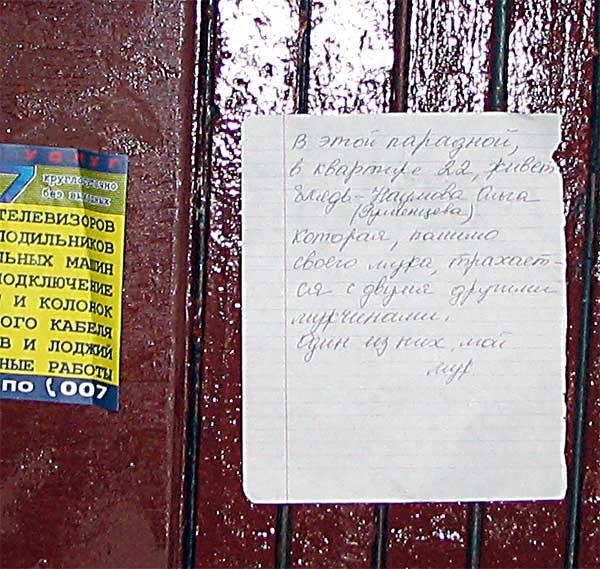 УСЛУГ
7 круглосуточно
без выходных
ТЕЛЕВИЗОРОВ
ЛОДИЛЬНИКОВ
ЛЬНЫХ МАШИН
ПОДКЛЮЧЕНИЕ
И КОЛОНОК
ОГО КАБЕЛЯ
В И ЛОДЖИЙ
НЫЕ РАБОТЫ
ПО 007
В этой парадной,
в квартире 22, живет
блядь - Наумова Ольга
которая, помимо
своего мужа, трахает-
ся с двумя другими
мужчинами.
Один из них, мой
муж